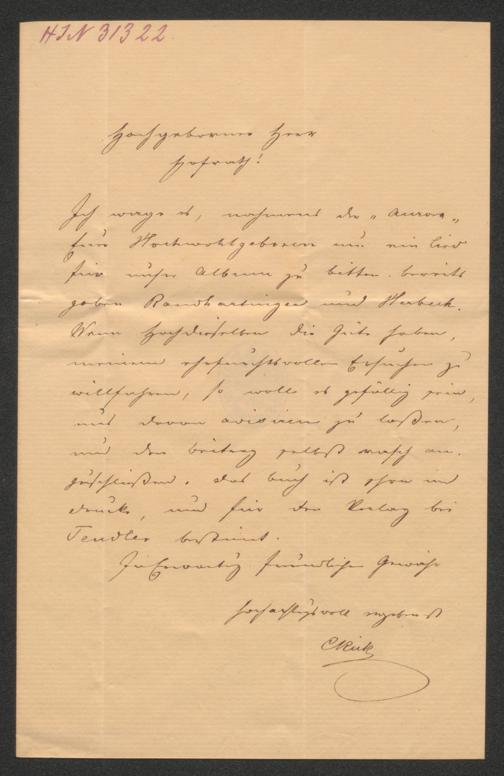 HIN 31322
Hochgeborner Herr
Hofrath!
Ich wage es, nahmens der „Aurora„
Euer Hochwohlgeboren um ein Lied
für unser Album zu bitten. bereits
gaben Randhartinger und Herbeck.
Wenn Hochdieselben die Güte haben,
meinem ehrfurchtsvollen Ersuchen zu
willfahren, so wolle es gefällig sein,
uns davon avisiren zu laßen,
und den beitrag selbst rasch an
zuschließen. das buch ist schon im
drucke, und für den Verlag bei
Tendler bestimt.
In Erwartg freundlicher Gewähr
hochachtgsvoll ergebenst